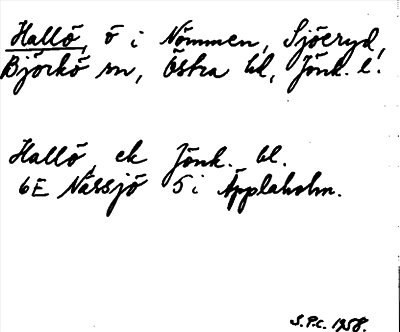 Hallö, ö i Nömmen, Sjöeryd,
Björkö sn, Östra hd, Jönk. l.
Hallö, ek Jönk. bl.
6E Nässjö 5 i Äpplaholm.
S.P.C. 1958.